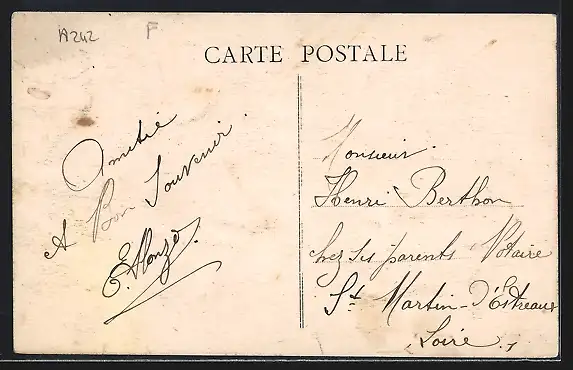 A242 F
CARTE POSTALE
Amitié
A Bon Souvenir.
Monsieur
Henri Berthon
chez ses parents Notaire
St Martin-d'Estreaux
Loire.